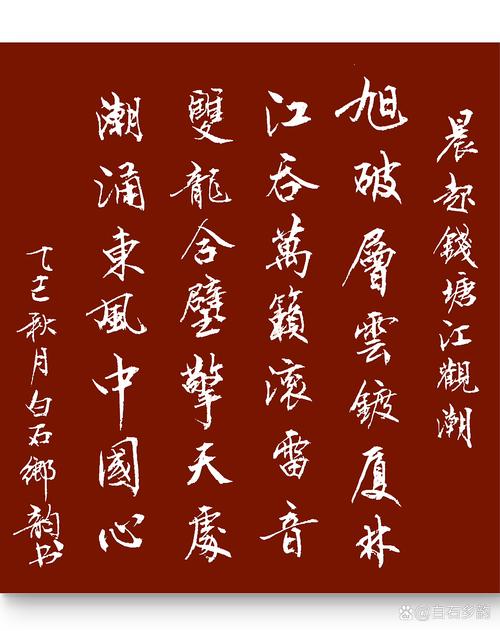 晨起錢塘江觀潮
旭破層雲鍍厦林
江吞萬籟滚雷音
雙龍合璧擎天處
潮涌東風中國心
乙巳秋月白石鄉韵书
@白石乡韵